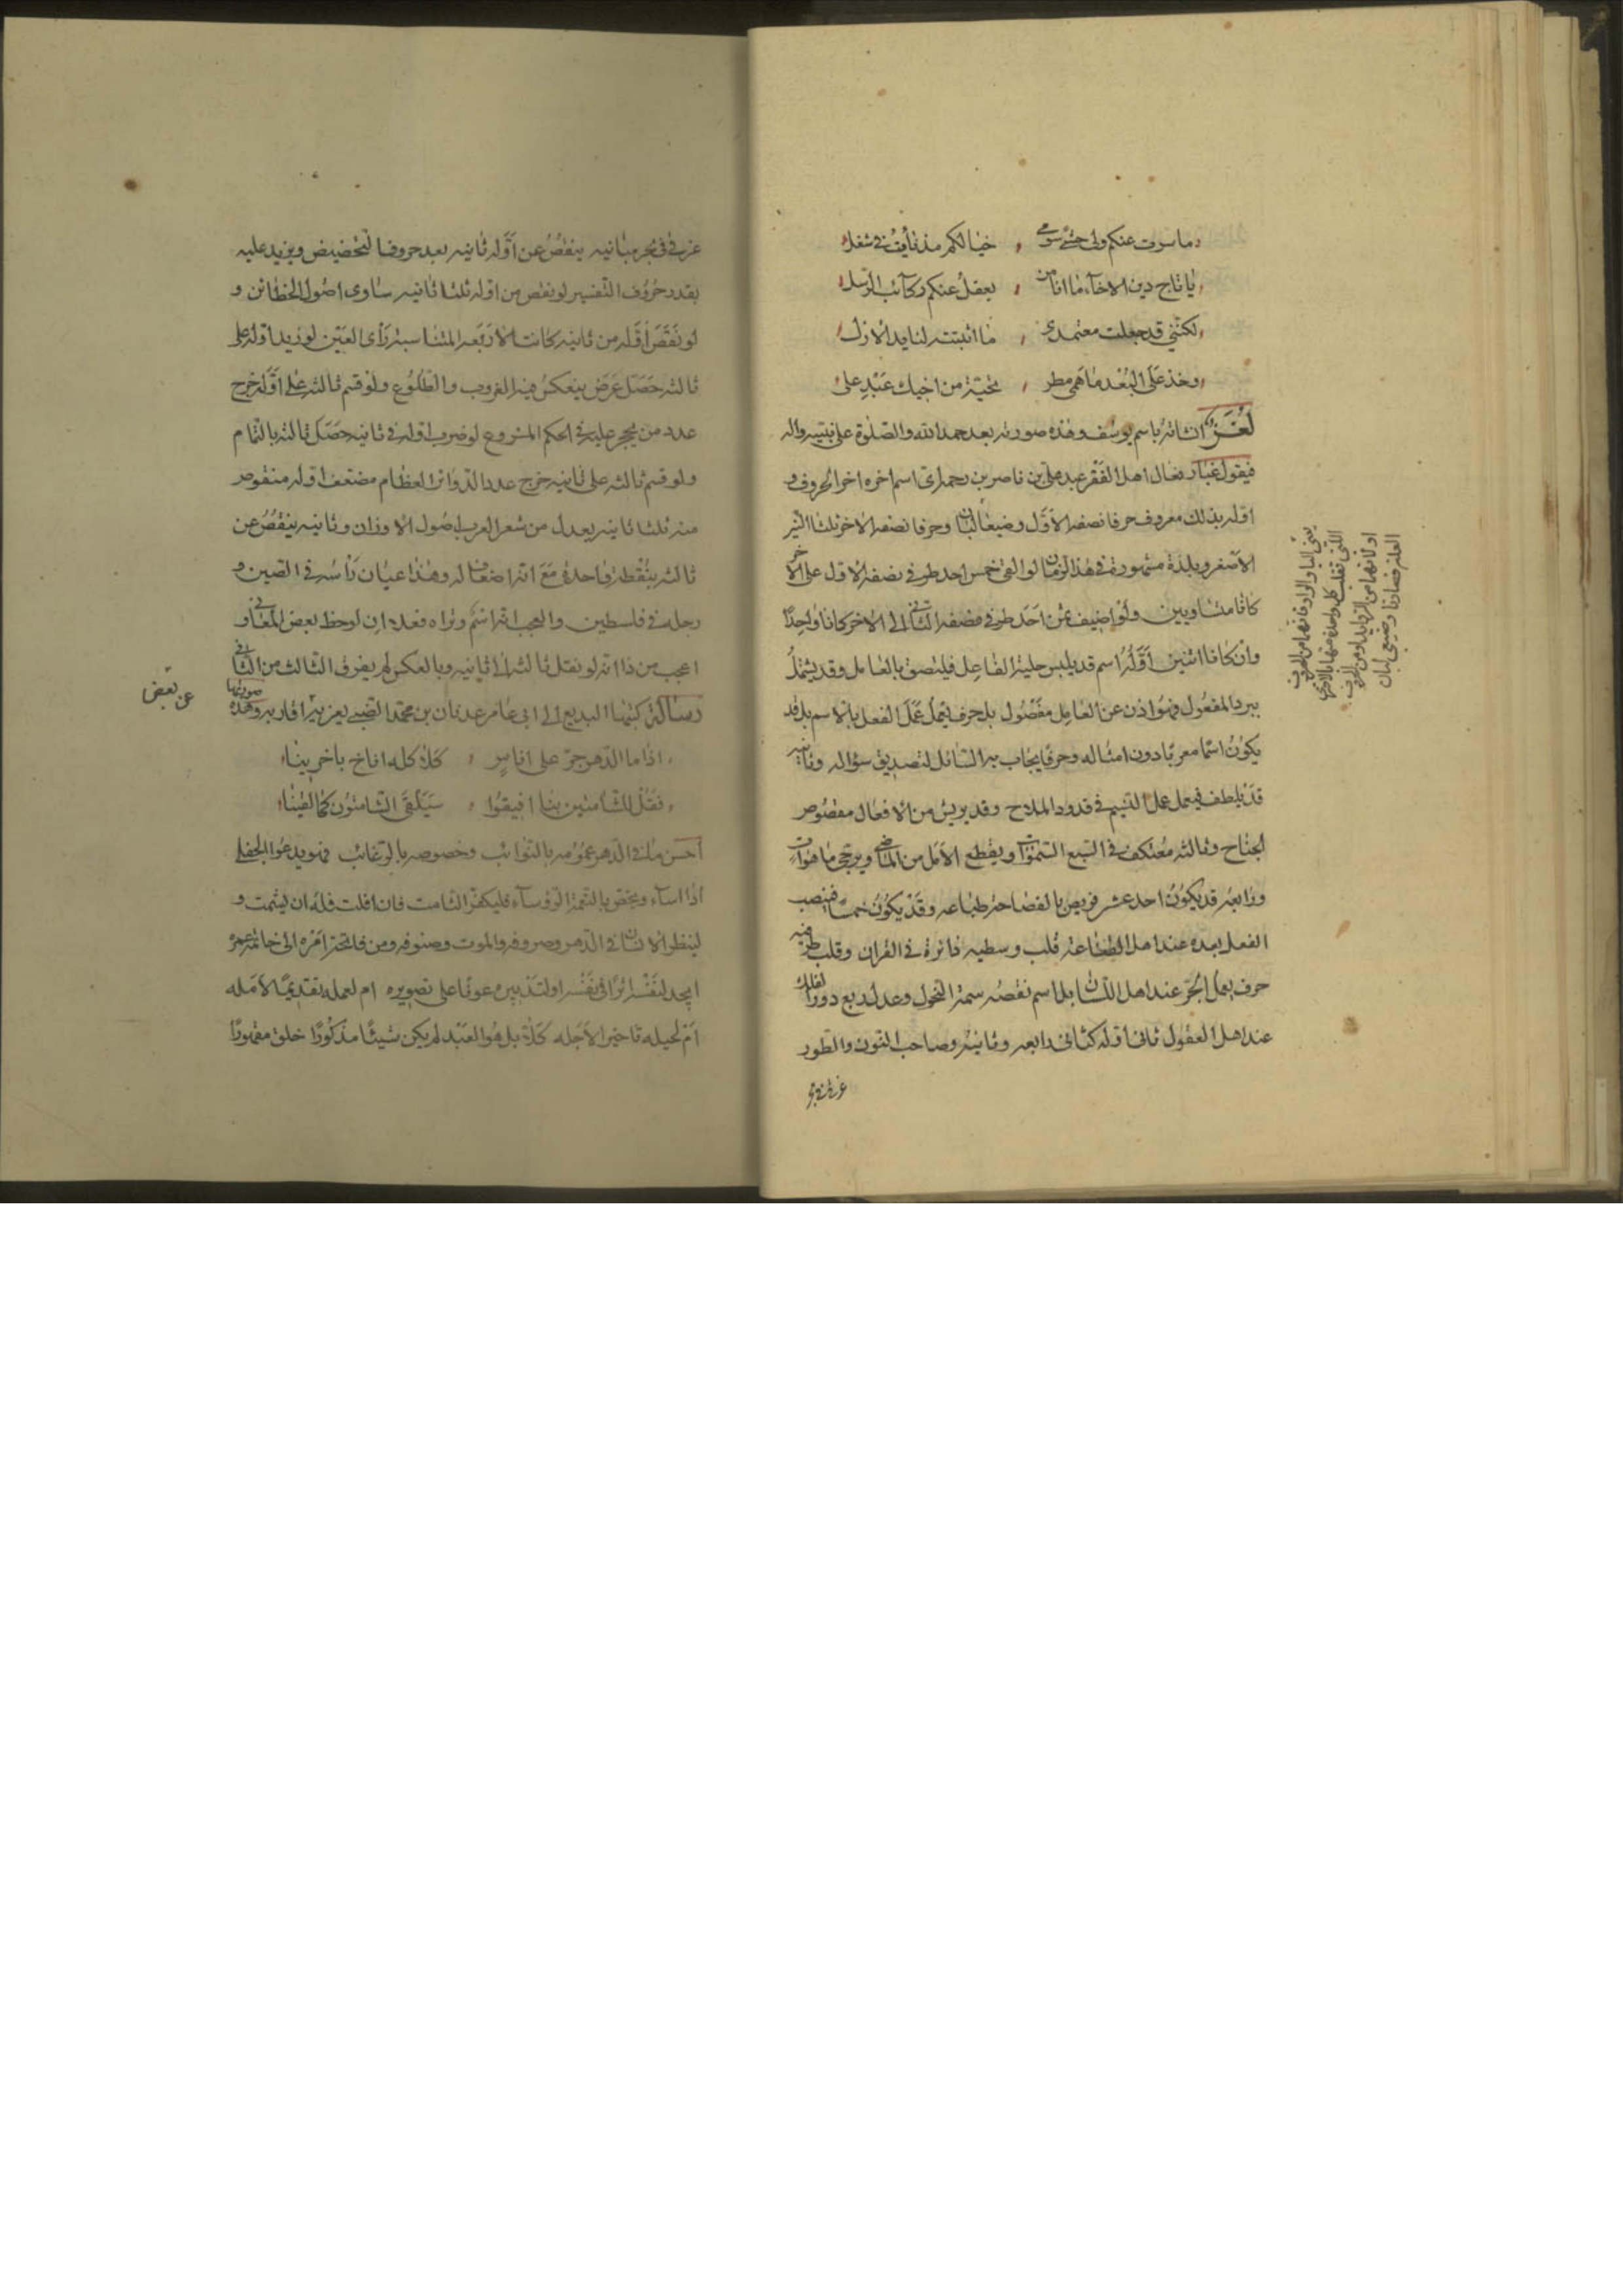 وما سرت عنكم ولى حشى سوى ، خيالكم مذ نأيت في شغل
يا تاج دين الاخاء ما انا من ، يعقل عنكم ركائب الرسل
لكنني قد جعلت معتمدى ، ما اثبتته لنا يد الازل
وخذ على البعد ما همى مطر ، تحية من اخيك عبد على
لغز انشاته باسم يوسف وهذه صورته بعد حمد الله والصلوة على نبيه واله
فيقول غبار نعال اهل الفقر عبد علي بن ناصر بن رحمة اى اسم اخره اخر الحروف و
اوله بذلك معروف حرفا نصفه الاول رضيعا لبان وحرفا نصفه الاخر ثلثا النير
الاصغر وبلدة مشهورة في هذا الزمان لو القى خمس احد طرفي نصفه الاول على الاخر
كانا متساويين ولو اضيف عشر احد طرفي نصفه الثاني الى الاخر كانا واحدا
وان كانا اثنين اوله اسم قد يلبس حلية الفاعل فيلتصق بالعامل وقد يشتمل
ببرد المفعول وهو اذن عن العامل مفصول بل حرف يعمل عمل الفعل بالاسم بل قد
يكون اسما معربا دون امثاله وحرفا يجاب به السائل لتصديق سؤاله وثانيه
قد يلطف فيعمل عمل النسيم في قدود الملاح وقد يريش من الافعال مقصوص
الجناح وثالثه معتكف في السبع السموات ويقطع الامل من الماضي ويرجى ما هو ات
ورابعه قد يكون احد عشر فريص بالفصاحة طباعه وقد يكون خمسا فينصب
الفعل بعده عند اهل الصناعة قلب وسطيه دائرة في القران وقلب طرفيه
حرف يعمل الجر عند اهل اللسان بل اسم نقصه سمة النحول وعدل ربع دور الفلك
عند اهل العقول ثاني اوله كثاني رابعه وثانيه وصاحب النون والطور
يعنى اليا والواو فانهما من الحروف
اللتى تقلب كل واحدة منهما بالاخرى
او لانهما من الزوايد او من حروف
العلة فصارتا رضيعى لبان
غرق في بحر مبانيه ينقص عن اوله ثانيه بعد حروف التحضيض ويزيد عليه
بقدر حروف التفسير لو نقص من اوله ثلثا ثانيه ساوى اصول الخطائن و
لو نقص اوله من ثانيه كانت الاربعه المتناسبة رأى العين لو زيد اوله على
ثالثه حصل عرض ينعكس فيه الغروب والطلوع ولو قسم ثالثه على اوله خرج
عدد من يجر عليه في الحكم المشروع لو ضرب اوله في ثانيه حصل ثالثه بالتمام
ولو قسم ثالثه على ثانيه خرج عدد الدوائر العظام مضعف اوله منقوص
منه ثلثا ثانيه يعدل من شعر العرب اصول الاوزان وثانيه ينقص عن
ثالثه بنقطة واحدة مع انه اضعاف له وهذا عيان رأسه في الصين و
رجله في فلسطين والعجب انه اسم وتراه فعلا ان لوحظ بعض المعاني و
اعجب من ذا انه لو نقل ثالثه الى ثانيه وبالعكس لم يفرق الثالث من الثاني
رسالة كتبها البديع الى ابي عامر عدنان بن محمد الضبي يعزيه اقاربه وهذه صورتها
عن بعض
اذا ما الدهر جر على اناس ، كلاكله اناخ باخرينا
فقل للشامتين بنا افيقوا ، سيلقى الشامتون كما لقينا
احسن ما في الدهر عمومه بالنوائب وخصوصه بالرغائب فهو يدعوا الجفلى
اذا اساء ويختص بالنعمة الرؤساء فليكفر الشامت فان افلت فله ان يشمت و
لينظر الانسان في الدهر وصروفه والموت وصنوفه ومن فاتحة امره الى خاتمة عمره
ايجد لنفسه اثرا في نفسه او لتدبيره عونا على تصويره ام لعمله تقديما لامله
ام لحيله تاخيرا لاجله كلا بل هو العبد لم يكن شيئا مذكورا خلق مقهورا